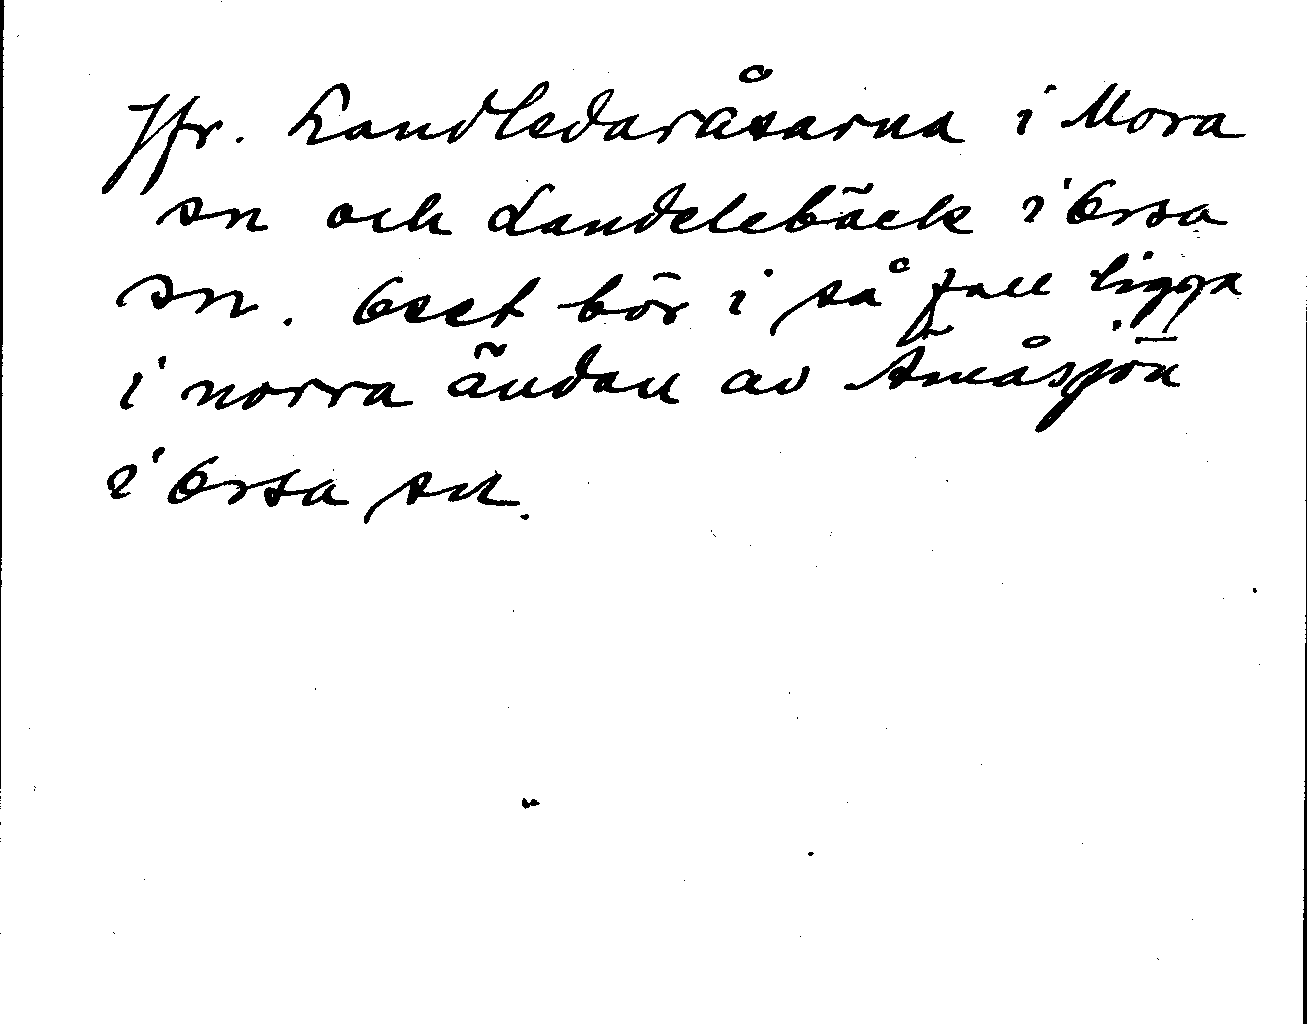 Jfr. Landledaråsarna i Mora
sn och Landelebäck i Orsa
sn. Oset bör i så fall ligga
i norra ändan av Ämåsjön
i Orsa sn.